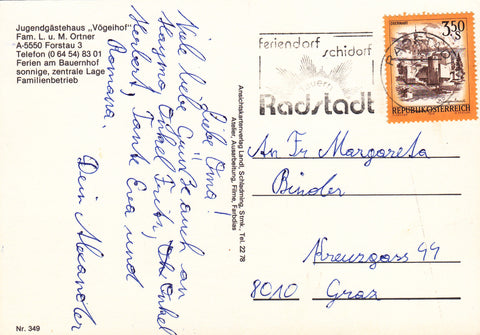 Jugendgästehaus „Vögeihof"
Fam. L. u. M. Ortner
A-5550 Forstau 3
Telefon (0 64 54) 83 01
Ferien am Bauernhof
sonnige, zentrale Lage
Familienbetrieb
Liebe Oma!
Viele liebe Grüße auch an
Haymo, Onkel Fritz, Onkel
Herbert, Tante Eva und
Romana.
Dein Alexander
Nr. 349
Ansichtskartenverlag Landl, Schladming, Stmk., Tel. 22 78
Atelier, Ausarbeitung, Filme, Farbdias
feriendorf
schidorf
Radstadt
3.50
S
REPUBLIK ÖSTERREICH
An Fr Margareta
Binder
Kreuzgass 44
8010 Graz